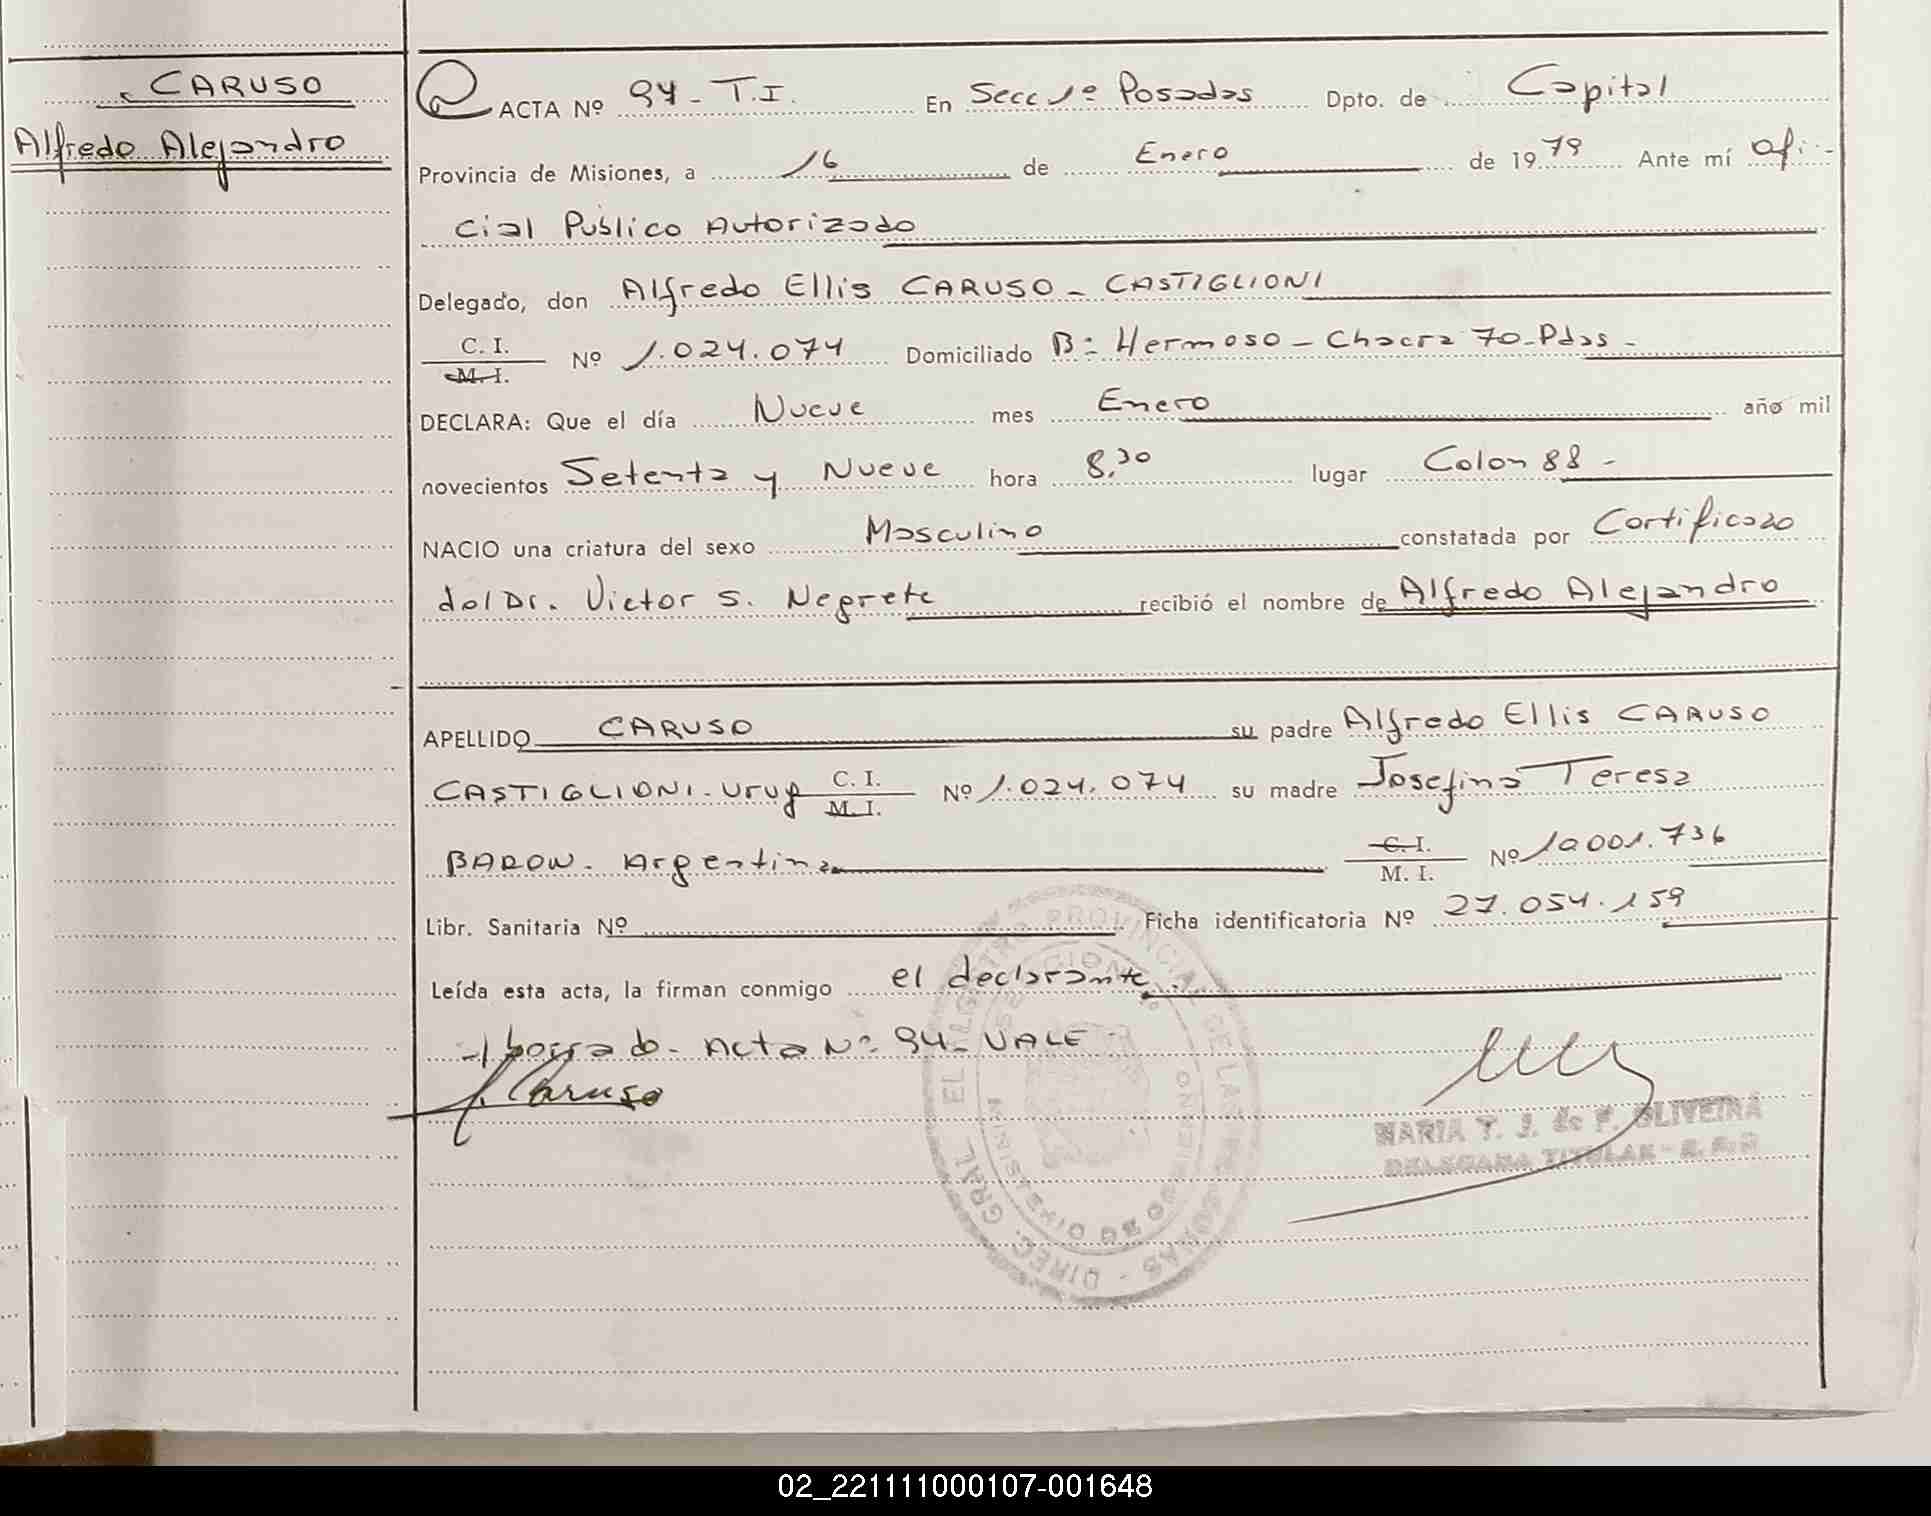 CARUSO
Alfredo Alejandro
ACTA Nº 94 - T.I. En Secc 1º Posadas Dpto. de Capital
Provincia de Misiones, a 16 de Enero de 1979 Ante mí Ofi-
cial Publico Autorizado
Delegado, don Alfredo Ellis CARUSO - CASTIGLIONI
C. I.
M. I. Nº 1.024.074 Domiciliado Bº Hermoso - Chacra 70 - Pdas -
DECLARA: Que el día Nueve mes Enero año mil
novecientos Setenta y Nueve hora 8,30 lugar Colon 88 -
NACIO una criatura del sexo Masculino constatada por Certificado
del Dr. Victor S. Negrete recibió el nombre de Alfredo Alejandro
APELLIDO CARUSO su padre Alfredo Ellis CARUSO
CASTIGLIONI - Urug C. I. M. I. Nº 1.024.074 su madre Josefina Teresa
BARON - Argentina C. I. M. I. Nº 10001.736
Libr. Sanitaria Nº Ficha identificatoria Nº 27.054.159
Leída esta acta, la firman conmigo el declarante.
borrado - Acta Nº 94 - VALE -
Caruso
MARIA T. J. de F. OLIVEIRA
DELEGADA TITULAR -
DIREC. GRAL. EL REGISTRO PROVINCIAL DE LAS PERSONAS -
MINISTERIO DE GOBIERNO
02_221111000107-001648